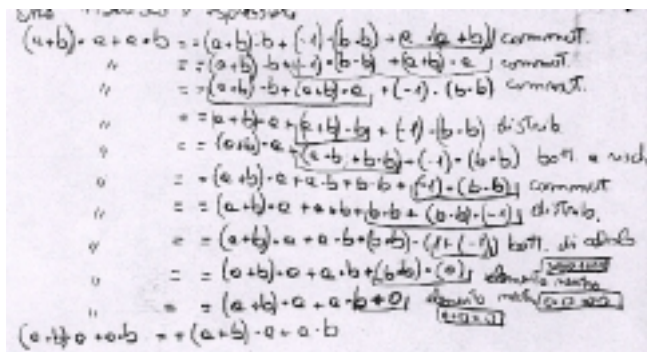 (a+b)·a+a·b = =(a+b)·b+(-1)·(b·b)+a·(a+b) commut.
" = =(a+b)·b+(-1)·(b·b)+(a+b)·a commut.
" = =(a+b)·b+(a+b)·a+(-1)·(b·b) commut.
" = =(a+b)·a+(a+b)·b+(-1)·(b·b) distrib
" = =(a+b)·a+(a·b+b·b)+(-1)·(b·b)
" = =(a+b)·a+a·b+b·b+(-1)·(b·b) commut
" = =(a+b)·a+a·b+b·b+(b·b)·(-1) distrib.
" = =(a+b)·a+a·b+(b·b)·(1+(-1)) di
" = =(a+b)·a+a·b+(b·b)·(0) elemento
" = =(a+b)·a+a·b+0 elemento
(a+b)·a+a·b = =(a+b)·a+a·b